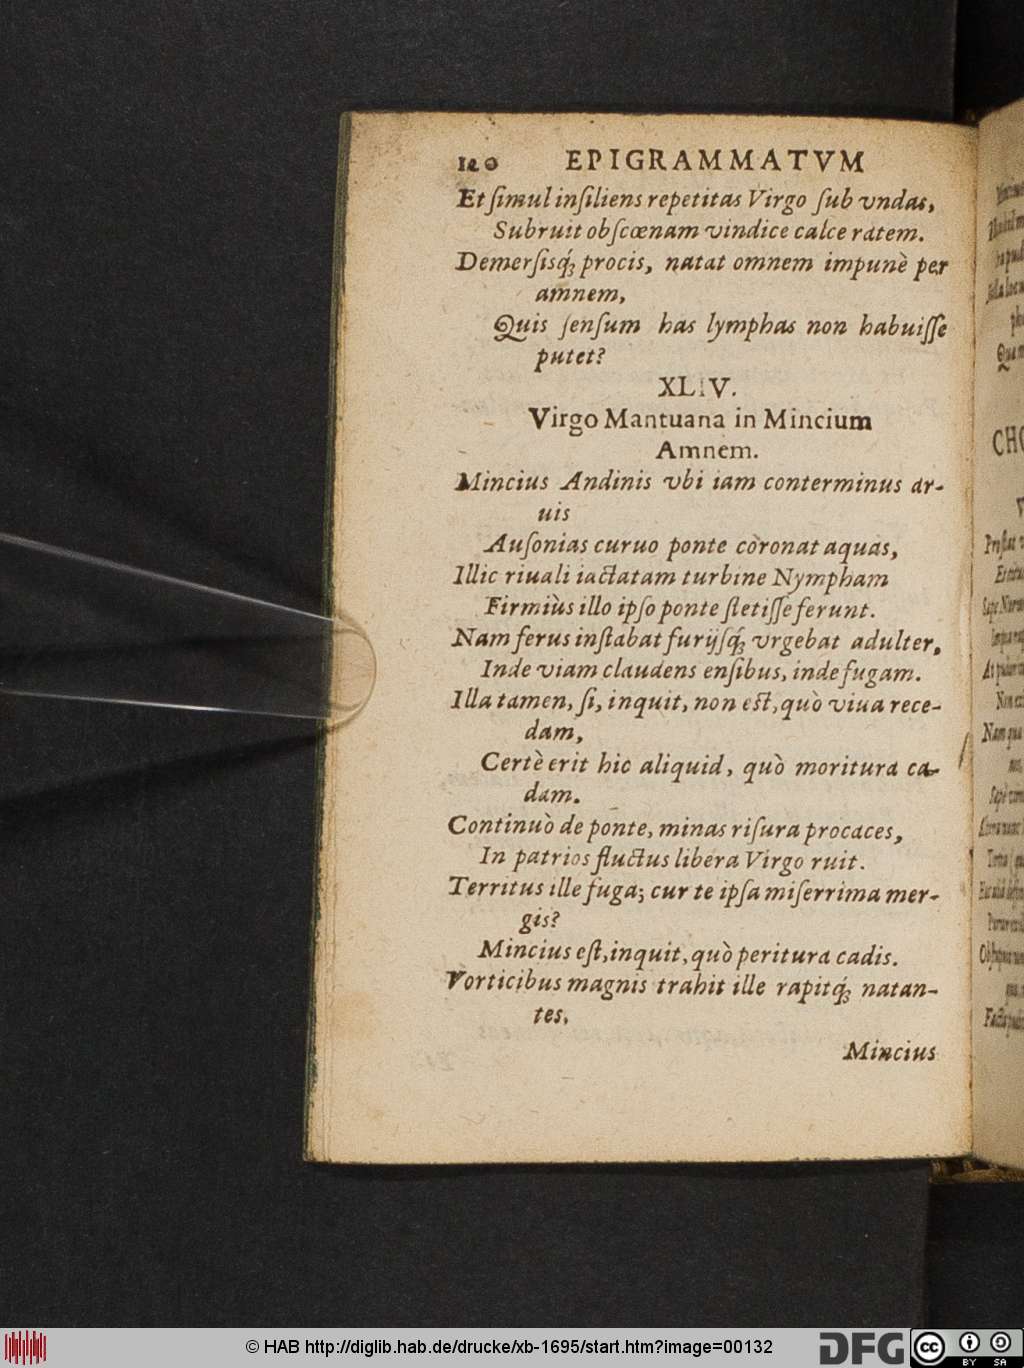 120 EPIGRAMMATVM
Et ſimul inſiliens repetitas Virgo ſub vndas,
Subruit obſcœnam vindice calce ratem.
Demerſisq́; procis, natat omnem impunè per
amnem,
Quis ſenſum has lymphas non habuiſſe
putet?
XLIV.
Virgo Mantuana in Mincium
Amnem.
Mincius Andinis vbi iam conterminus ar-
uis
Auſonias curuo ponte coronat aquas,
Illic riuali iactatam turbine Nympham
Firmiùs illo ipſo ponte ſtetiſſe ferunt.
Nam ferus inſtabat furijſq́; vrgebat adulter,
Inde viam claudens enſibus, inde fugam.
Illa tamen, ſi, inquit, non eſt, quò viua rece-
dam,
Certè erit hic aliquid, quò moritura ca-
dam.
Continuò de ponte, minas riſura procaces,
In patrios fluctus libera Virgo ruit.
Territus ille fuga; cur te ipſa miſerrima mer-
gis?
Mincius eſt, inquit, quò peritura cadis.
Vorticibus magnis trahit ille rapitq́; natan-
tes,
Mincius
© HAB http://diglib.hab.de/drucke/xb-1695/start.htm?image=00132
DFG
cc BY SA